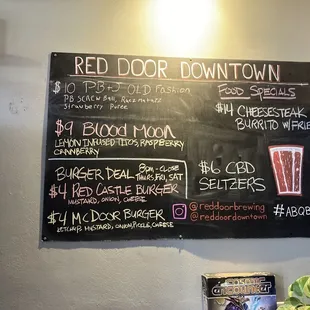 RED DOOR DOWNTOWN
$10 PB+J OLD Fashion
PB SCREW Ball,
Strawberry Puree
$9 BLOOD MOON
LEMON INFUSED TITOS, RASPBERRY
CRANBERRY
BURGER DEAL 8pm - CLOSE
THURS, FRI, SAT
$4 RED CASTLE BURGER
MUSTARD, ONION, CHEESE
$4 MCDOOR BURGER
KETCHUP, MUSTARD, ONION, PICKLE, CHEESE
FOOD SPECIALS
$14 CHEESESTEAK
BURRITO W/ FRIE
$6 CBD
SELTZERS
@reddoorbrewing
@reddoordowntown
#ABQB
COSMIC
ENCOUNTER